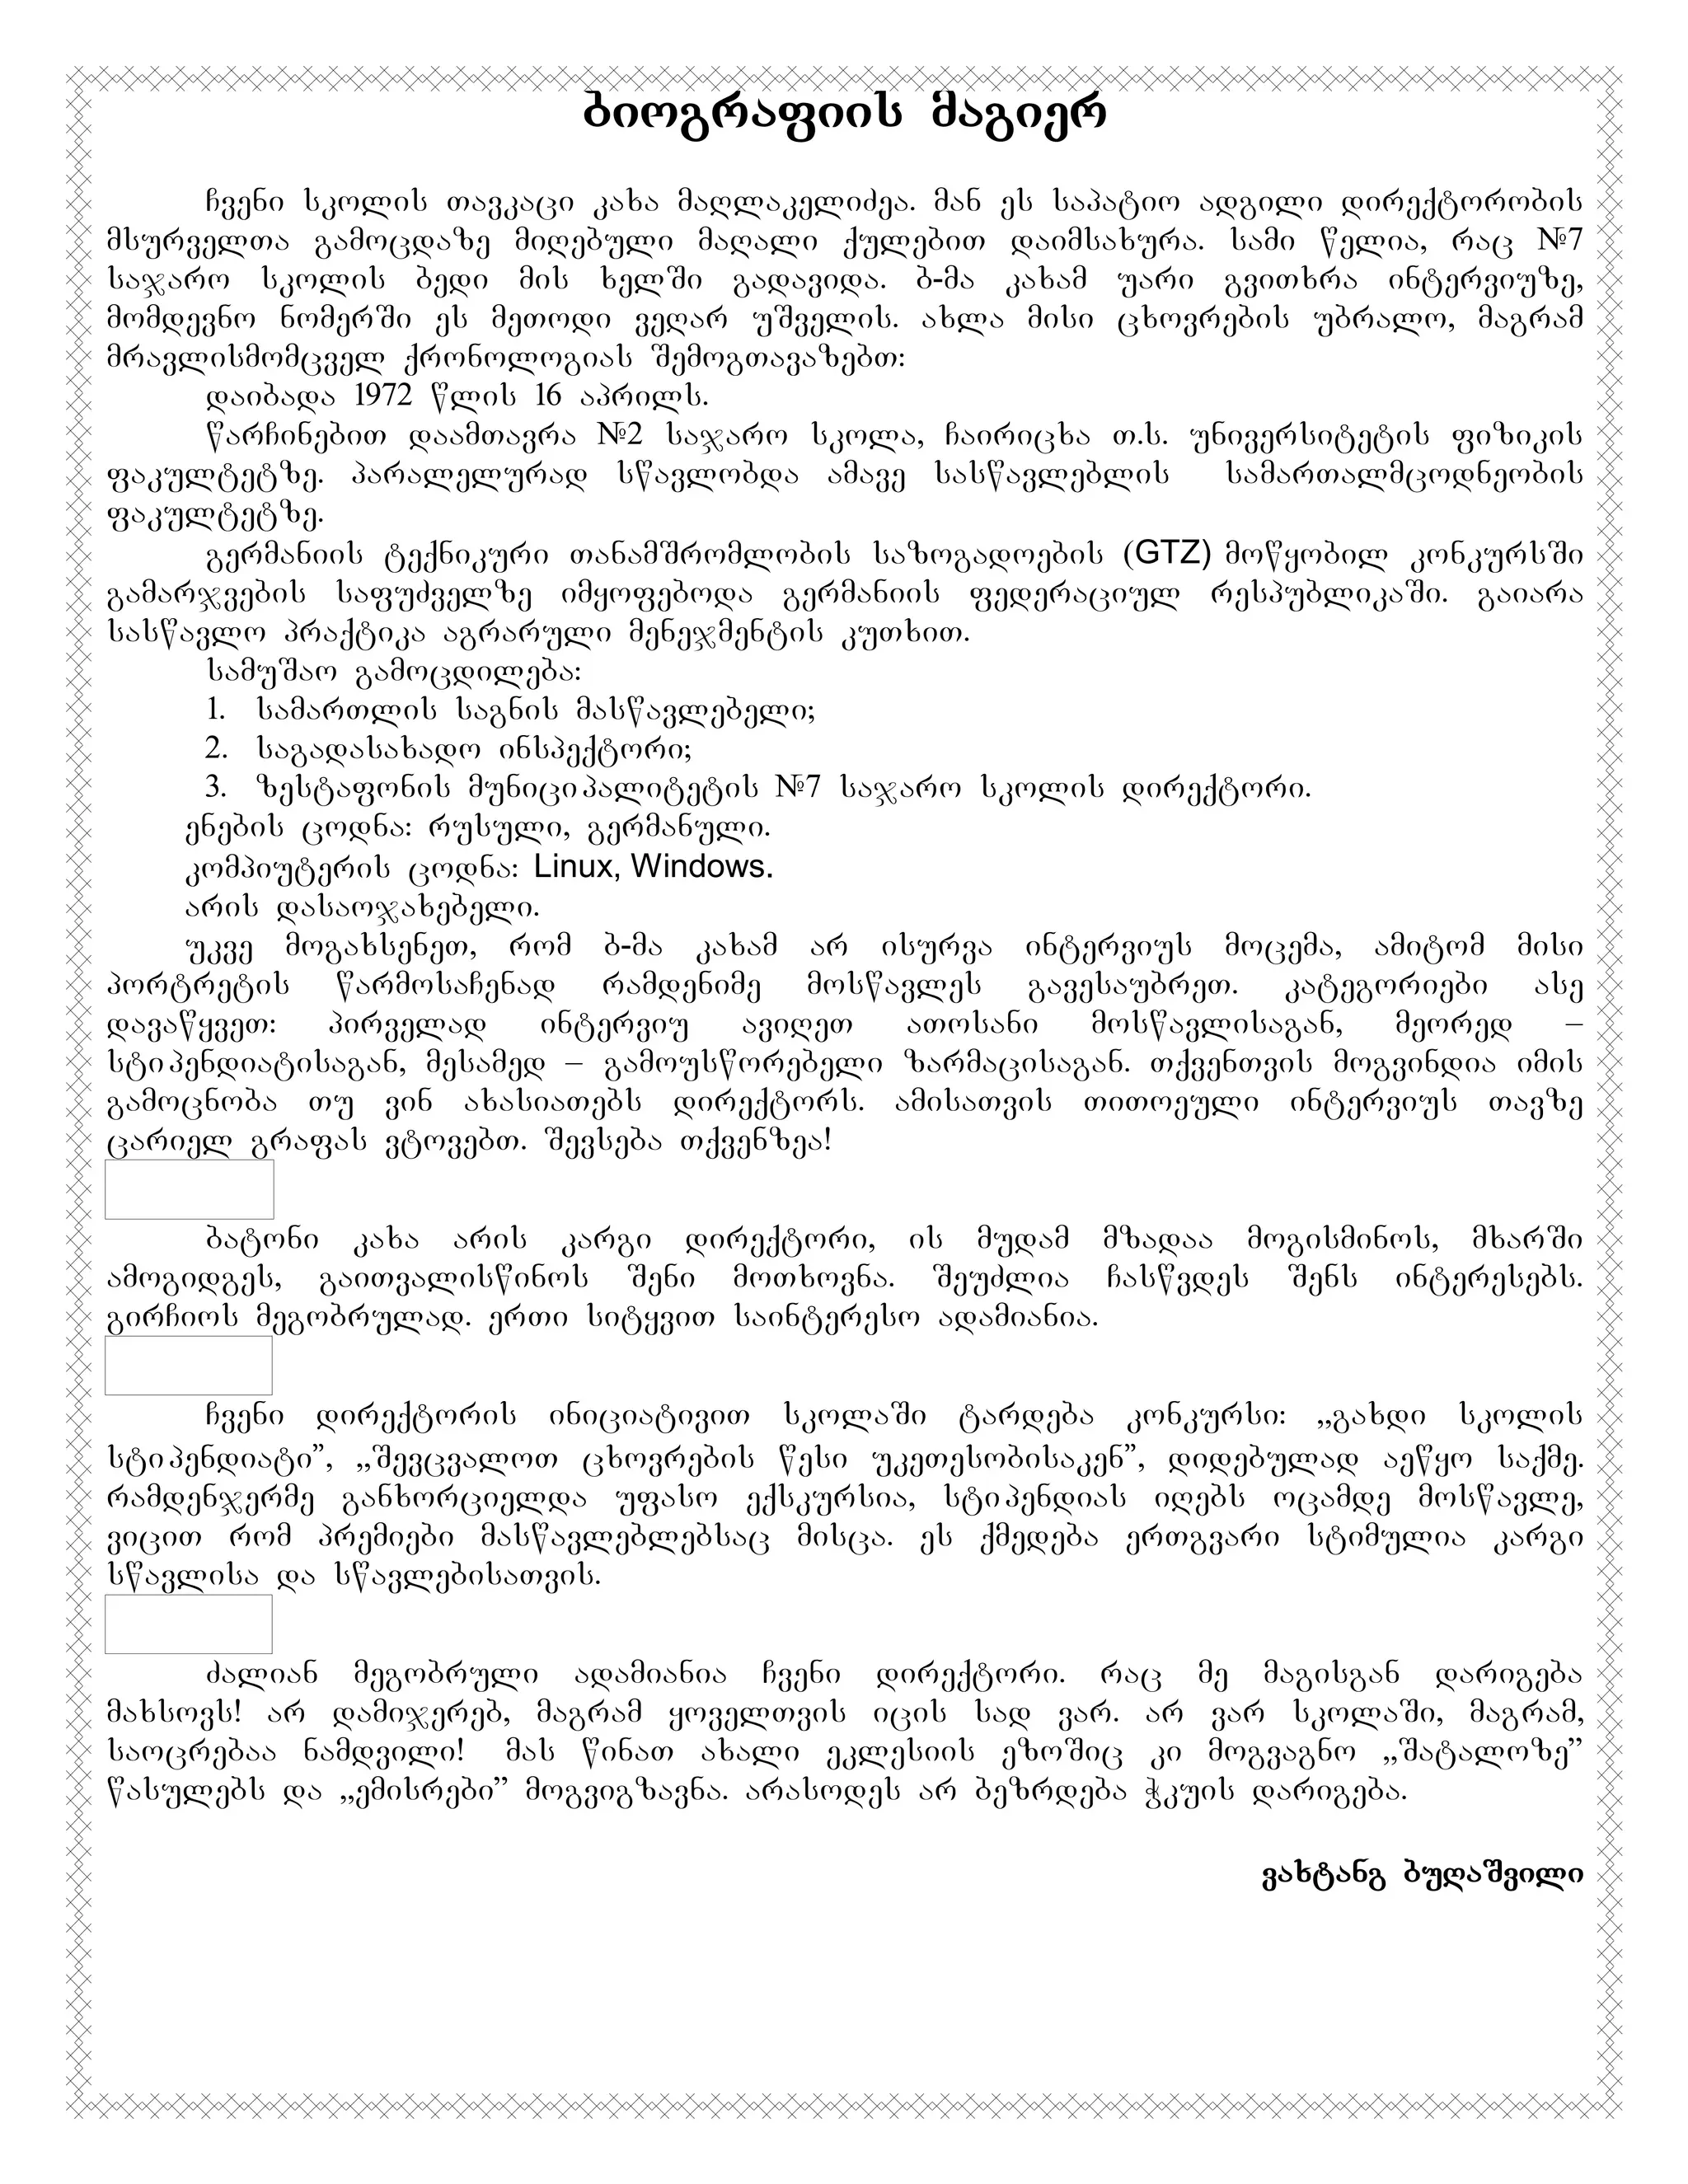 ბიოგრაფიის მაგიერ
ჩვენი სკოლის თავკაცი კახა მაღლაკელიძეა. მან ეს საპატიო ადგილი დირექტორობის
მსურველთა გამოცდაზე მიღებული მაღალი ქულებით დაიმსახურა. სამი წელია, რაც №7
საჯარო სკოლის ბედი მის ხელში გადავიდა. ბ-მა კახამ უარი გვითხრა ინტერვიუზე,
მომდევნო ნომერში ეს მეთოდი ვეღარ უშველის. ახლა მისი ცხოვრების უბრალო, მაგრამ
მრავლისმომცველ ქრონოლოგიას შემოგთავაზებთ:
დაიბადა 1972 წლის 16 აპრილს.
წარჩინებით დაამთავრა №2 საჯარო სკოლა, ჩაირიცხა თ.ს. უნივერსიტეტის ფიზიკის
ფაკულტეტზე. პარალელურად სწავლობდა ამავე სასწავლებლის სამართალმცოდნეობის
ფაკულტეტზე.
გერმანიის ტექნიკური თანამშრომლობის საზოგადოების (GTZ) მოწყობილ კონკურსში
გამარჯვების საფუძველზე იმყოფებოდა გერმანიის ფედერაციულ რესპუბლიკაში. გაიარა
სასწავლო პრაქტიკა აგრარული მენეჯმენტის კუთხით.
სამუშაო გამოცდილება:
1. სამართლის საგნის მასწავლებელი;
2. საგადასახადო ინსპექტორი;
3. ზესტაფონის მუნიციპალიტეტის №7 საჯარო სკოლის დირექტორი.
ენების ცოდნა: რუსული, გერმანული.
კომპიუტერის ცოდნა: Linux, Windows.
არის დასაოჯახებელი.
უკვე მოგახსენეთ, რომ ბ-მა კახამ არ ისურვა ინტერვიუს მოცემა, ამიტომ მისი
პორტრეტის წარმოსაჩენად რამდენიმე მოსწავლეს გავესაუბრეთ. კატეგორიები ასე
დავაწყვეთ: პირველად ინტერვიუ ავიღეთ ათოსანი მოსწავლისაგან, მეორედ –
სტიპენდიატისაგან, მესამედ – გამოუსწორებელი ზარმაცისაგან. თქვენთვის მოგვინდია იმის
გამოცნობა თუ ვინ ახასიათებს დირექტორს. ამისათვის თითოეული ინტერვიუს თავზე
ცარიელ გრაფას ვტოვებთ. შევსება თქვენზეა!
ბატონი კახა არის კარგი დირექტორი, ის მუდამ მზადაა მოგისმინოს, მხარში
ამოგიდგეს, გაითვალისწინოს შენი მოთხოვნა. შეუძლია ჩასწვდეს შენს ინტერესებს.
გირჩიოს მეგობრულად. ერთი სიტყვით საინტერესო ადამიანია.
ჩვენი დირექტორის ინიციატივით სკოლაში ტარდება კონკურსი: „გახდი სკოლის
სტიპენდიატი”, „შევცვალოთ ცხოვრების წესი უკეთესობისაკენ”, დიდებულად აეწყო საქმე.
რამდენჯერმე განხორციელდა უფასო ექსკურსია, სტიპენდიას იღებს ოცამდე მოსწავლე,
ვიცით რომ პრემიები მასწავლებლებსაც მისცა. ეს ქმედება ერთგვარი სტიმულია კარგი
სწავლისა და სწავლებისათვის.
ძალიან მეგობრული ადამიანია ჩვენი დირექტორი. რაც მე მაგისგან დარიგება
მახსოვს! არ დამიჯერებ, მაგრამ ყოველთვის იცის სად ვარ. არ ვარ სკოლაში, მაგრამ,
საოცრებაა ნამდვილი! მას წინათ ახალი ეკლესიის ეზოშიც კი მოგვაგნო „შატალოზე”
წასულებს და „ემისრები” მოგვიგზავნა. არასოდეს არ ბეზრდება ჭკუის დარიგება.
ვახტანგ ბუღაშვილი